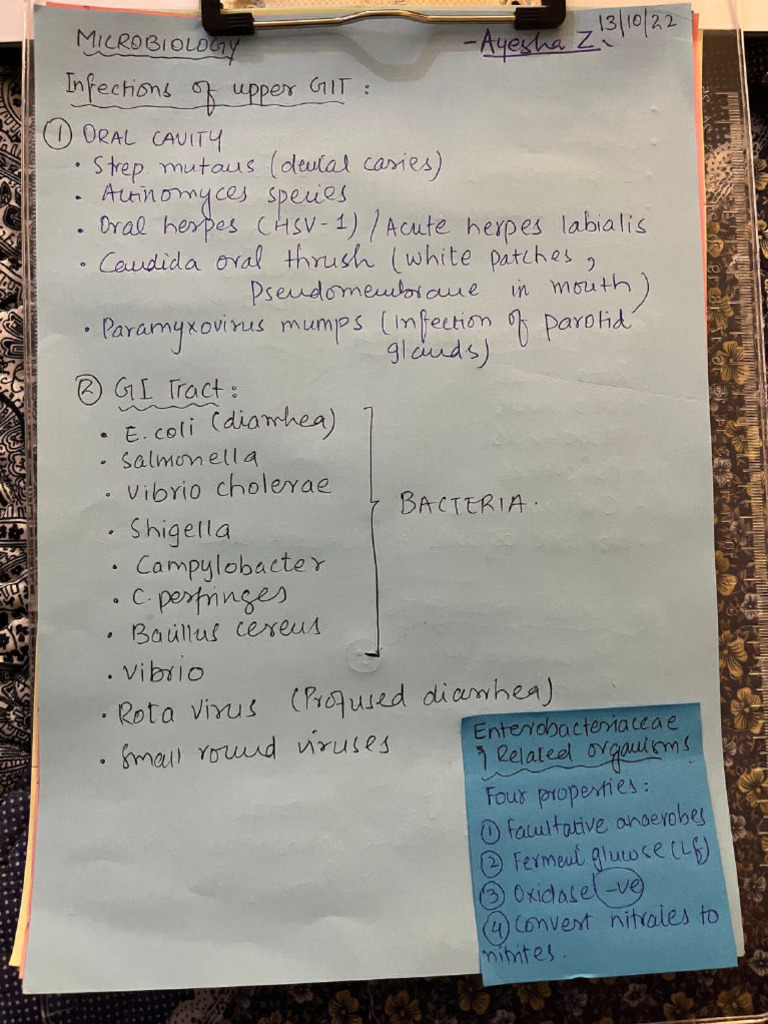 MICROBIOLOGY
- Ayesha Z. 13/10/22
Infections of upper GIT :
① ORAL CAVITY
• Strep mutans (dental caries)
• Actinomyces species
• Oral herpes (HSV-1) / Acute herpes labialis
• Candida oral thrush (white patches,
Pseudomembrane in mouth)
• Paramyxovirus mumps (Infection of parotid
glands)
② GI Tract :
• E. coli (diarrhea)
• Salmonella
• Vibrio cholerae
• Shigella
• Campylobacter
• C. perfringes
• Bacillus cereus
BACTERIA.
• Vibrio
• Rota virus (Profused diarrhea)
• Small round viruses
Enterobacteriaceae
& Related organisms
Four properties :
① Facultative anaerobes
② Ferment glucose (Lf)
③ Oxidase (-ve)
④ Convert nitrates to
nitrites.